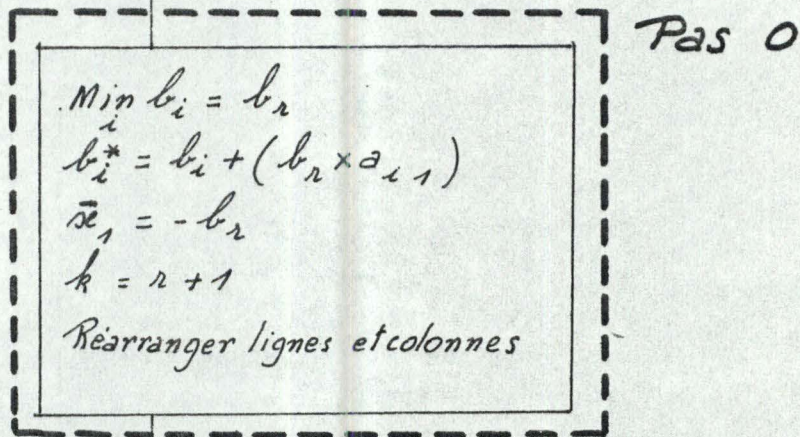 Pas 0
Min b_i = b_r
i
b_i* = b_i + (b_r × a_{i 1})
x̄_1 = - b_r
k = r + 1
Réarranger lignes et colonnes